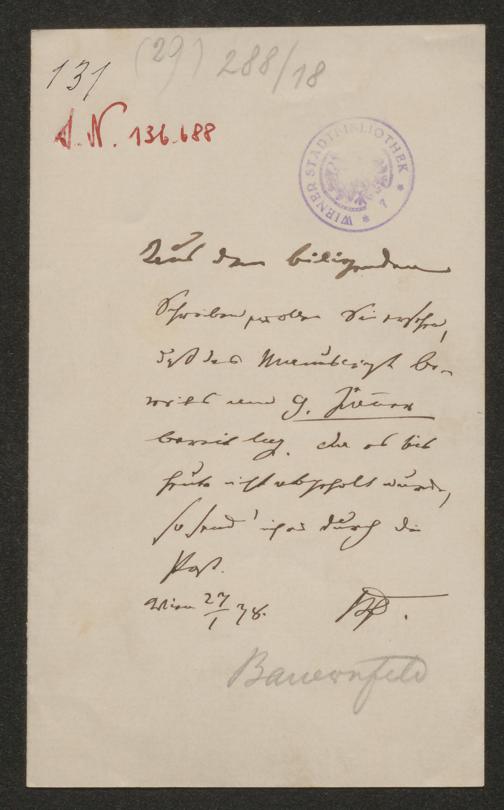 131 (29) 288/18
J. N. 136.688
WIENER STADTBIBLIOTHEK * 7 *
Aus dem beiliegenden
Schreiben wollen Sie ersehen,
daß das Manuscript be-
reits am 9. Jänner
bereit lag. Da es bis
heute nicht abgeholt wurde,
so send' ich es durch die
Post.
Wien 27/1 78. Bf.
Bauernfeld